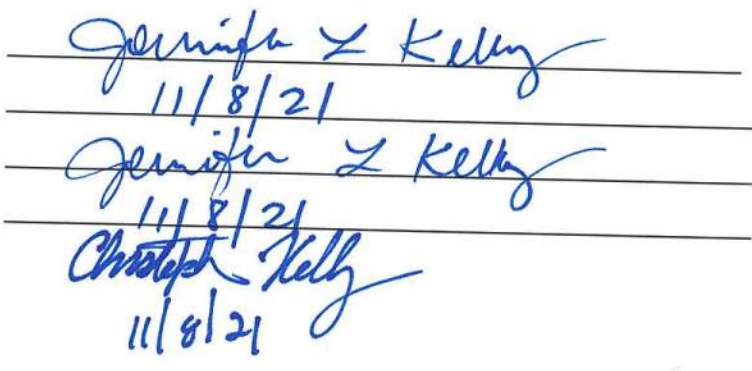 Jennifer L Kelly
11/8/21
Jennifer L Kelly
11/8/21
Christoph Kelly
11/8/21